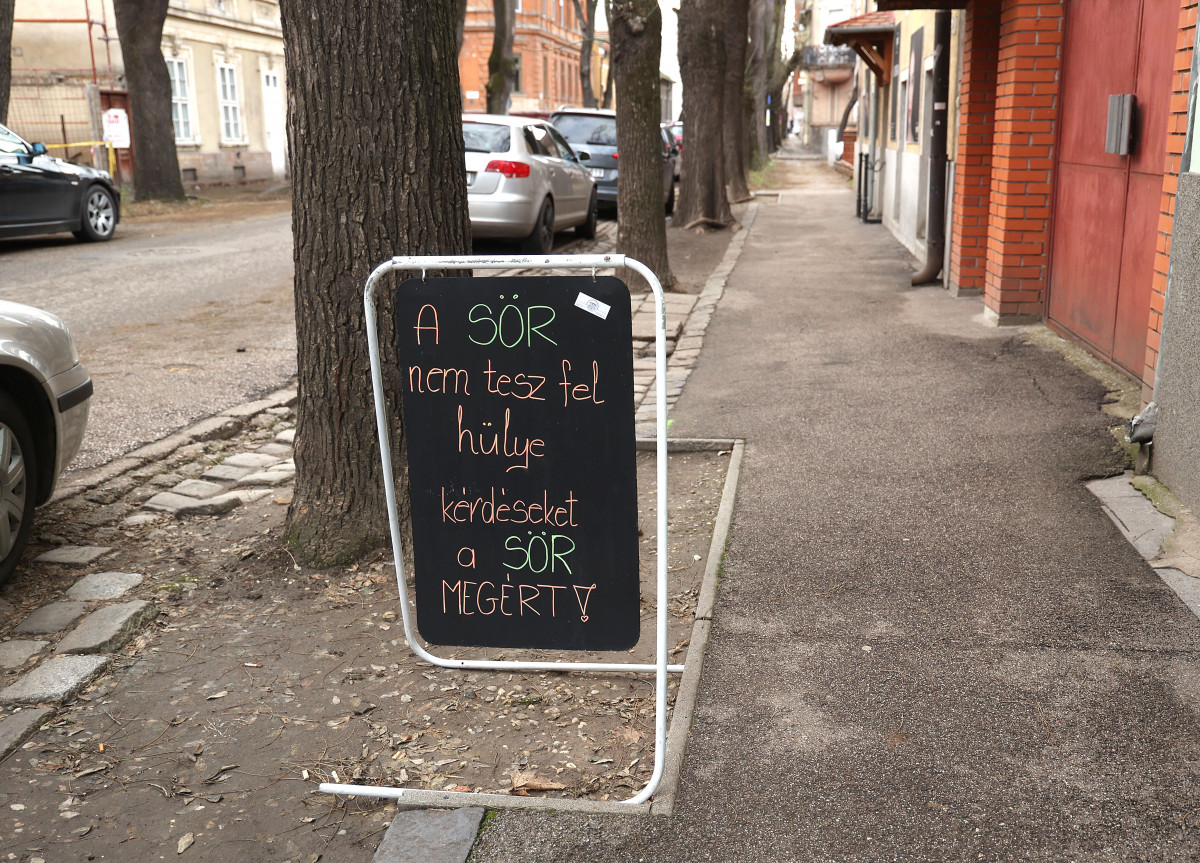 A SÖR
nem tesz fel
hülye
kérdéseket
a SÖR
MEGÉRT!